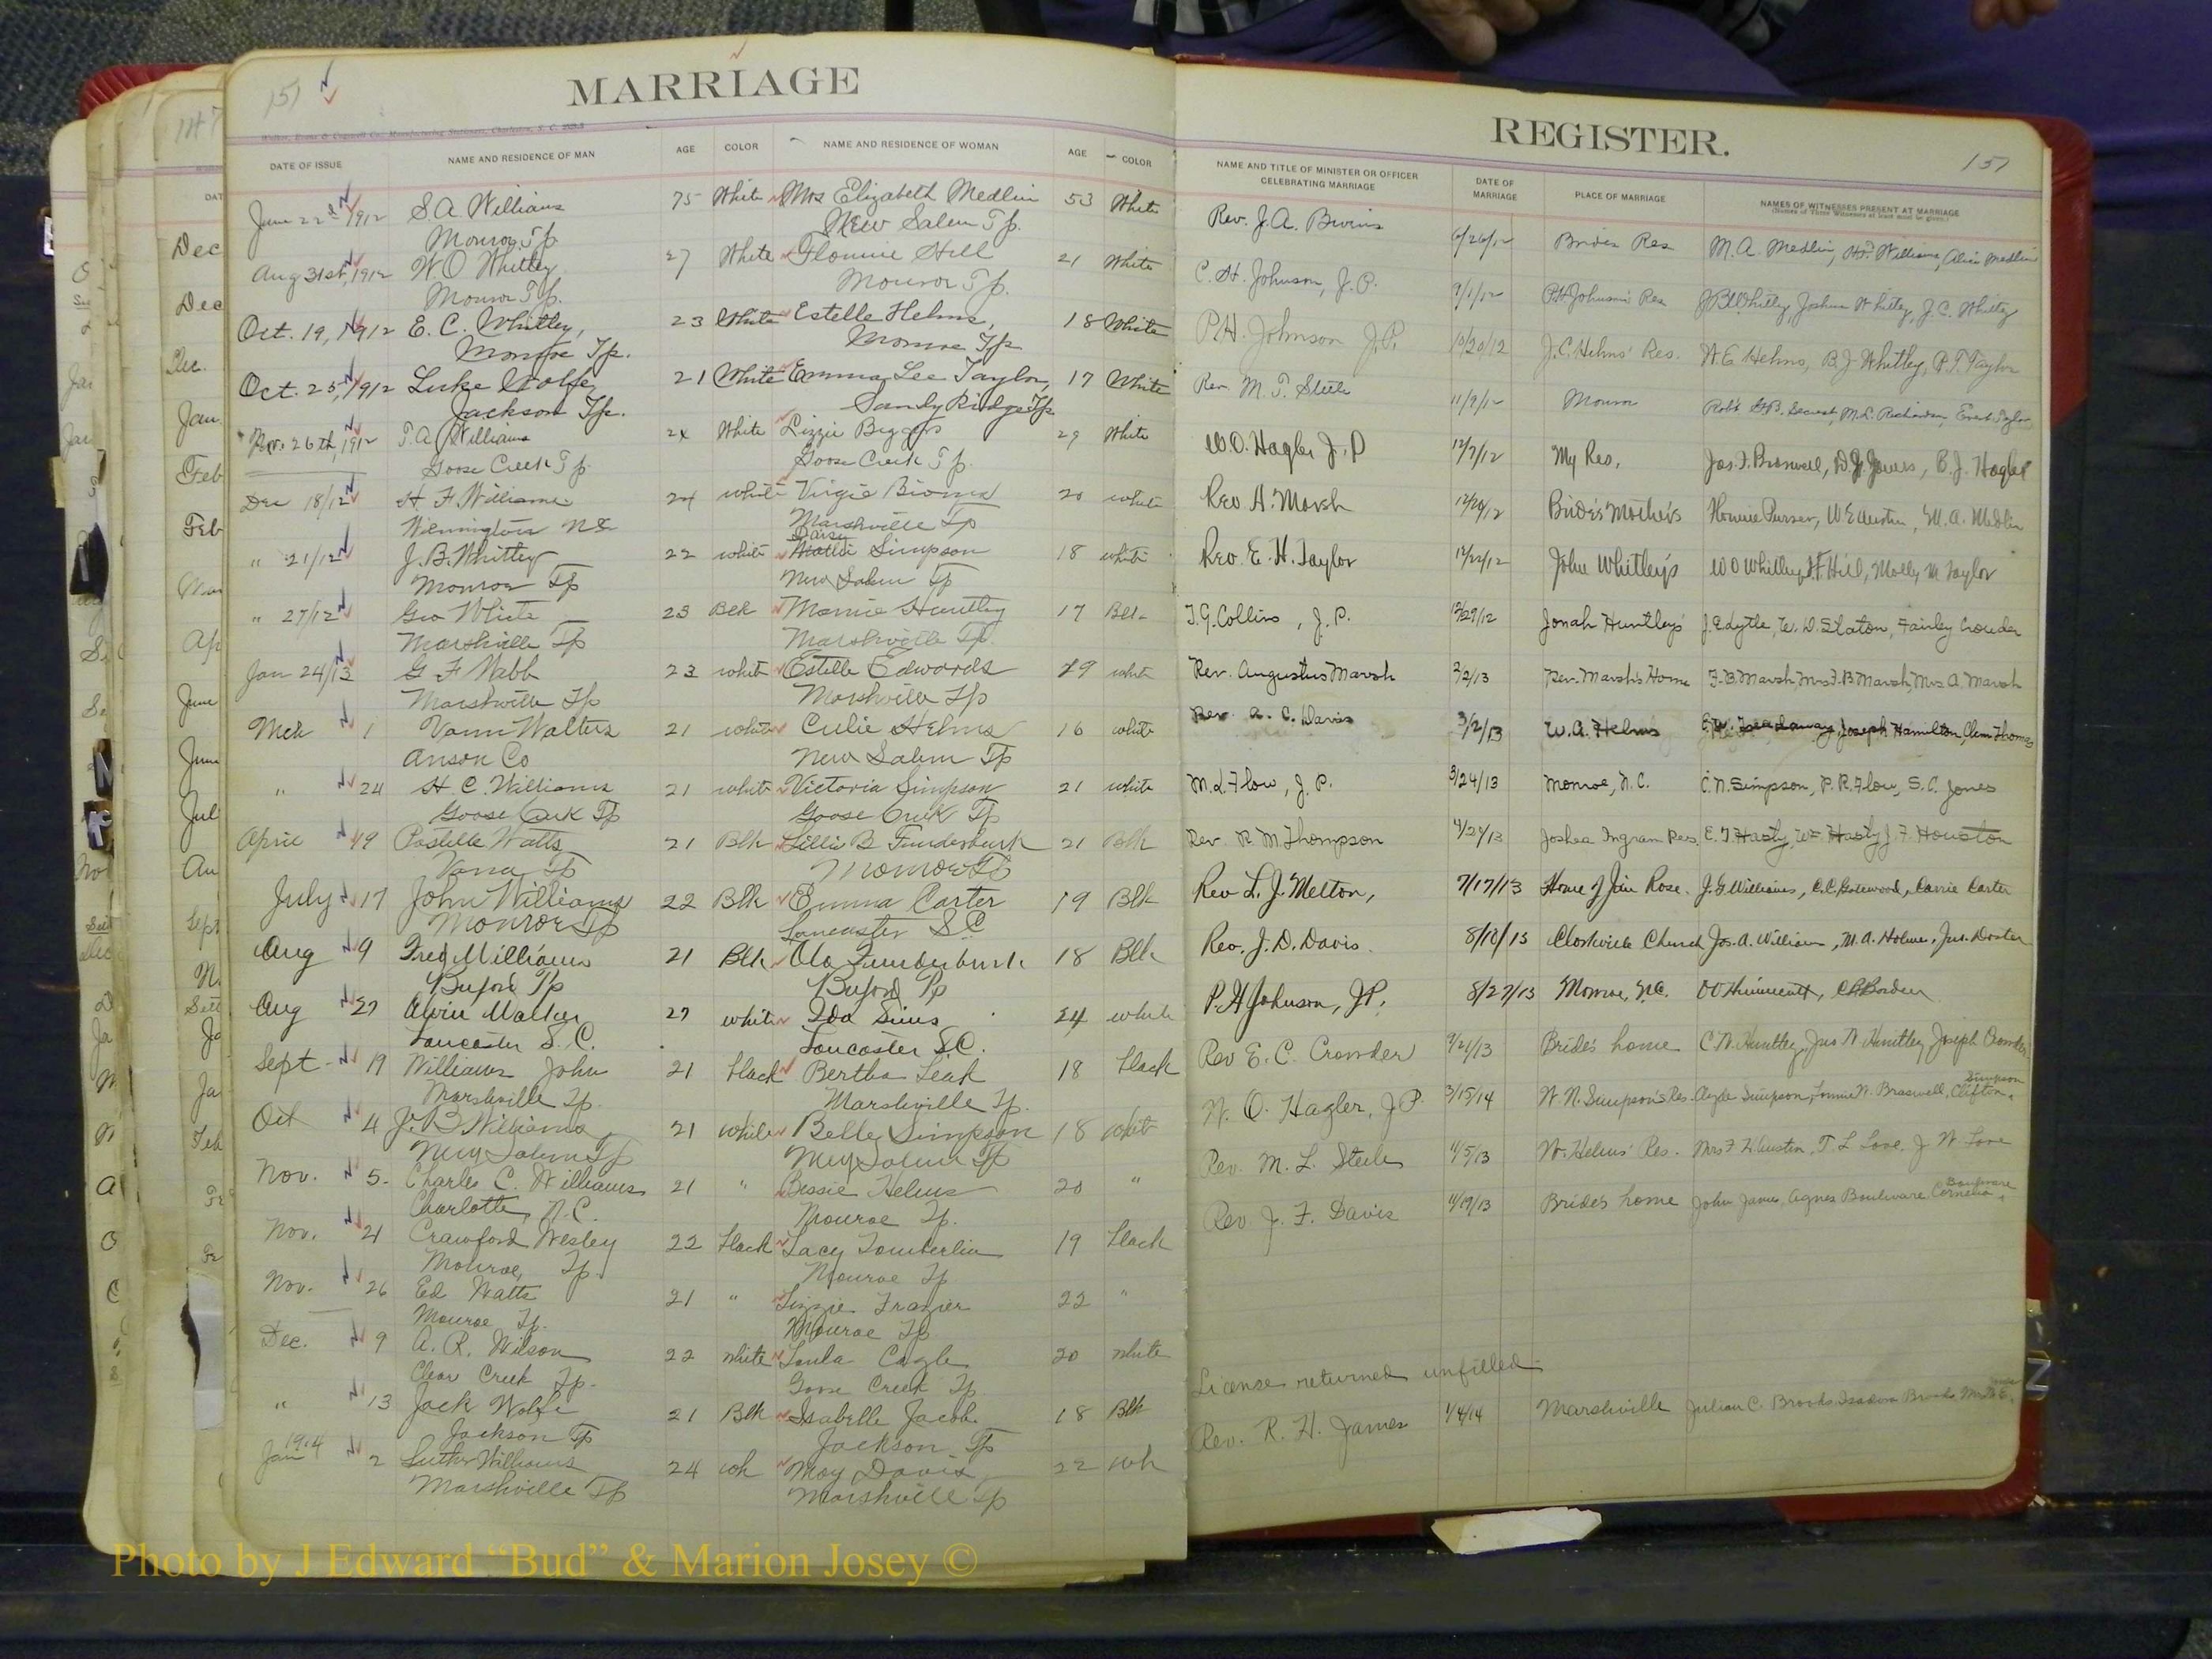 MARRIAGE
151
Walker, Evans & Cogswell Co., Manufacturing Stationers, Charleston, S. C.
DATE OF ISSUE NAME AND RESIDENCE OF MAN AGE COLOR NAME AND RESIDENCE OF WOMAN AGE COLOR
June 22nd 1912 S.A. Williams 75 White Mrs Elizabeth Medlin 53 White
Monroe Tp. New Salem Tp.
Aug 31st, 1912 W O Whitley 27 White Flonnie Hill 21 White
Monroe Tp. Monroe Tp.
Oct. 19, 1912 E. C. Whitley, 23 White Estelle Helms, 18 White
Monroe Tp. Monroe Tp
Oct. 25, 1912 Luke Wolfe, 21 White Emma Lee Taylor, 17 White
Jackson Tp. Sandy Ridge Tp
Nov. 26th, 1912 T.A. Williams White Lizzie Biggers 29 White
Goose Creek Tp. Goose Creek Tp.
Dec 18/12 H. F. Williams 24 white Virgie 20 white
Wilmington N.C. Marshville Tp
" 21/12 J.B. Whitley 22 white Daisy Simpson 18 white
Monroe Tp New Salem Tp
" 27/12 Geo White 23 Blk Mamie Huntley 17 Blk
Marshville Tp Marshville Tp
Jan 24/13 G F Webb 23 white Estelle Edwards 19 white
Marshville Tp Marshville Tp
Mch 1 Vann Walters 21 white Culie Helms 16 white
Anson Co New Salem Tp
" 24 H. C. Williams 21 white Victoria Simpson 21 white
Goose Creek Tp Goose Creek Tp
April 19 Postelle Watts 21 Blk Lillie B Funderburk 21 Blk
Vance Tp Monroe Tp
July 17 John Williams 22 Blk Emma Carter 19 Blk
Monroe Tp Lancaster SC
Aug 9 Fred Williams 21 Blk Ola Funderburk 18 Blk
Buford Tp Buford Tp
Aug 27 Alvin Walker 27 white Ida Sims 24 white
Lancaster S.C. Lancaster S.C.
Sept 19 Williams John 21 black Bertha Leak 18 black
Marshville Tp. Marshville Tp.
Oct 4 J. B Williams 21 white Belle Simpson 18 white
New Salem Tp New Salem Tp
Nov. 5. Charles C. Williams 21 " Bessie Helms 20 "
Charlotte, N.C. Monroe Tp.
Nov. 21 Crawford Wesley 22 black Lacy Tomberlin 19 black
Monroe, Tp. Monroe Tp
Nov. 26 Ed Watts 21 " Lizzie Frazier 22 "
Monroe Tp. Monroe Tp
Dec. 9 A. R. Wilson 22 white Loula Cagle 20 white
Clear Creek Tp. Goose Creek Tp
" 13 Jack Wolfe 21 Blk Isabelle Jacobs 18 Blk
Jackson Tp Jackson Tp
1914
Jan 2 Luther Williams 24 wh May Davis 22 wh
Marshville Tp Marshville Tp
REGISTER.
151
NAME AND TITLE OF MINISTER OR OFFICER CELEBRATING MARRIAGE DATE OF MARRIAGE PLACE OF MARRIAGE NAMES OF WITNESSES PRESENT AT MARRIAGE
(Names of Three Witnesses at least must be given.)
Rev. J. A. Bivins 6/26/12 Brides Res M. A. Medlin, Williams, Alice Medlin
C. H. Johnson, J.P. 9/1/12 P.H. Johnson's Res J B Whitley, Joshua Whitley, J. C. Whitley
P.H. Johnson J.P. 10/20/12 J.C. Helms' Res. W. E. Helms, B J Whitley, P. T. Taylor
Rev. M. T. Steele 11/9/12 Monroe Robt Secrest, M. L. Richardson, Taylor
W. O. Hagler J. P 12/7/12 My Res. Jas. F. Braswell, D. J. Jones, E. J. Hagler
Rev A. Marsh 12/20/12 Bride's Mother's Honnie Purser, W E Austin, M. A. Medlin
Rev. E. H. Taylor 12/22/12 John Whitley's W O Whitley, Hill, Molly M Taylor
T. G. Collins, J. P. 12/29/12 Jonah Huntley's W. D. Staton, Fairley Crowder
Rev. Augustus Marsh 2/2/13 Rev. Marsh's Home F. B. Marsh, Mrs F. B Marsh, Mrs A. Marsh
Rev. A. C. Davis 3/2/13 W. A. Helms Treadaway, Joseph Hamilton, Clem Thomas
M. L. Flow, J. P. 3/24/13 Monroe, N.C. C. N. Simpson, P. R. Flow, S. C. Jones
Rev. R. M. Thompson 4/20/13 Joshea Ingram Res. E. T. Hasty, Wm Hasty J. F. Houston
Rev L. J. Melton, 7/17/13 Home of Jim Rose. J. G Williams, C. C. Gatewood, Carrie Carter
Rev. J. D. Davis. 8/10/13 Clarksville Church Jos. A. Williams, M. A. Holmes, Jno. Doster
P. H Johnson, JP. 8/27/13 Monroe, N.C. O O Hunnicutt, C. Borden
Rev E. C. Crowder 9/21/13 Bride's home C. W. Huntley, Jno W Huntley, Joseph Crowder
W. O. Hagler, J P. 3/15/14 W N. Simpson's Res. Clyde Simpson, Lonnie N. Braswell, Clifton Simpson
Rev. M. L. Steele 11/5/13 W. Helms' Res. Mrs F H Austin, T. L Love, J W Love
Rev J. F. Davis 11/19/13 Brides home John James, Agnes Boulware Cornelia Boulware
License returned unfilled
Rev. R. H. James 1/4/14 Marshville Julian C. Brooks, Isadora Brooks
Photo by J Edward “Bud” & Marion Josey ©